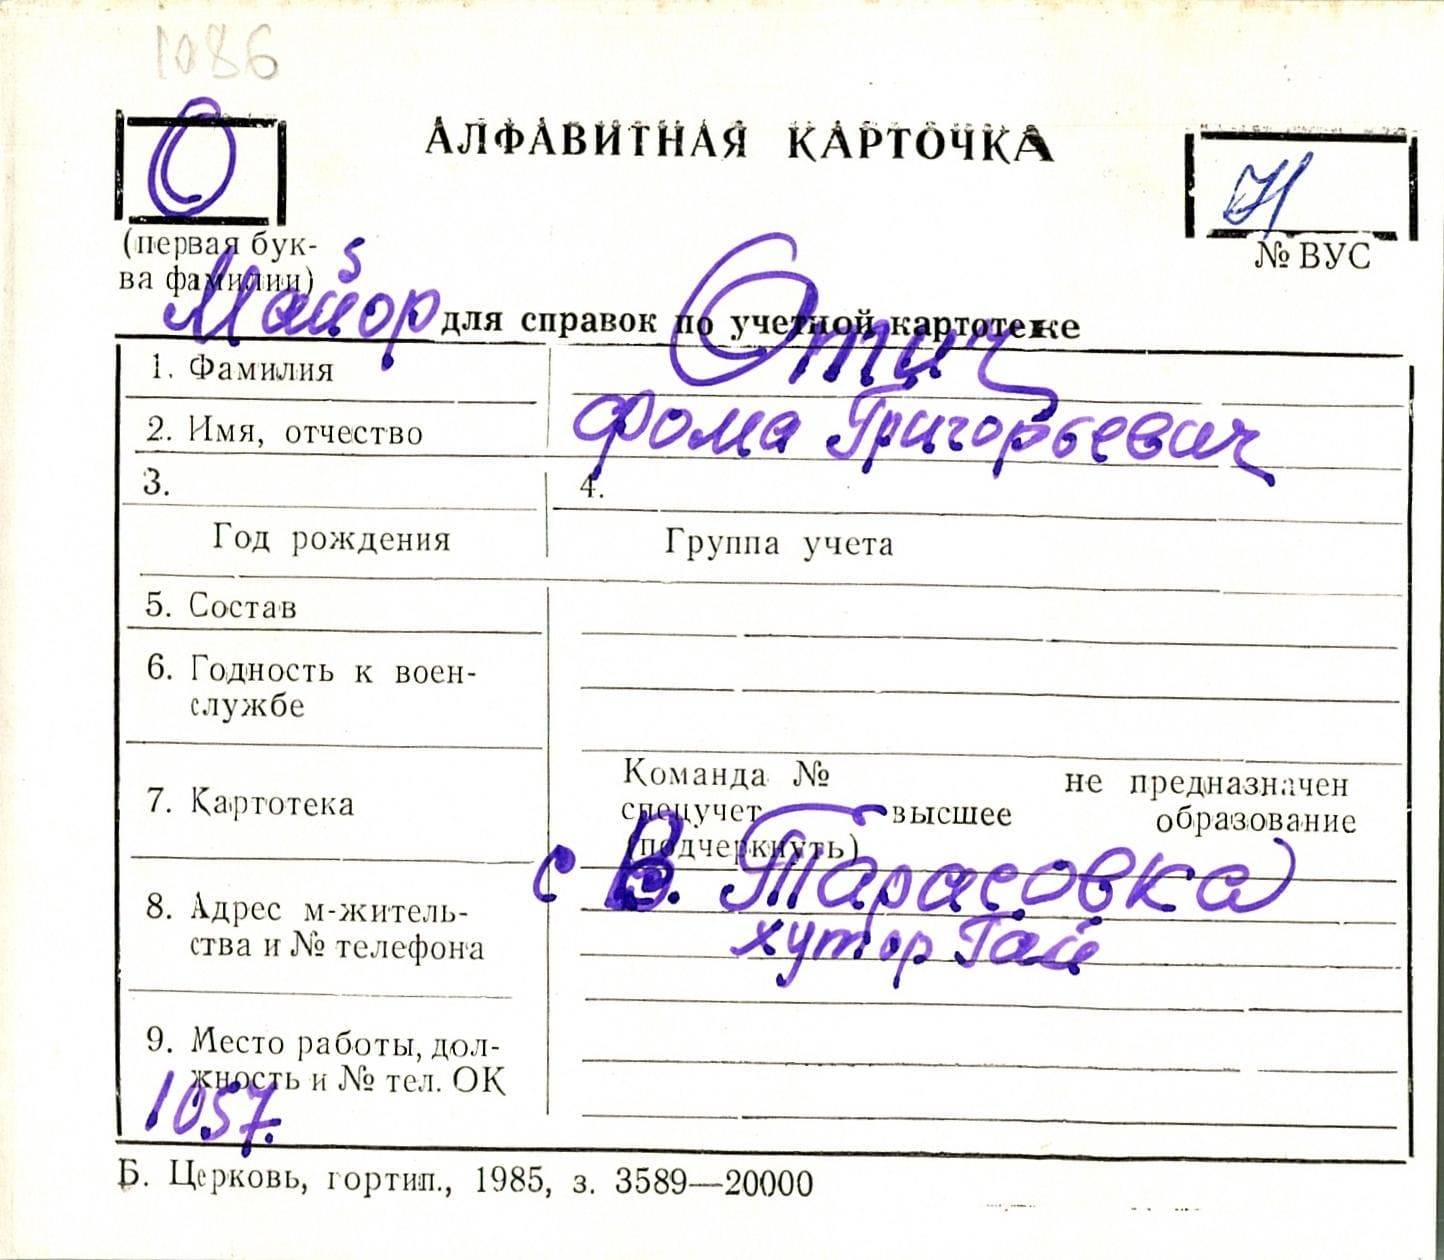 1086
О
АЛФАВИТНАЯ КАРТОЧКА
(первая бук-
ва фамилии)
№ ВУС
Майор для справок по учетной картотеке
1. Фамилия Отич
2. Имя, отчество Фома Григорьевич
3. 4.
Год рождения Группа учета
5. Состав
6. Годность к воен-
службе
7. Картотека
Команда № не предназначен
спецучет высшее образование
(подчеркнуть)
с В. Тарасовка
хутор Гай
8. Адрес м-житель-
ства и № телефона
9. Место работы, дол-
жность и № тел. ОК
1057.
Б. Церковь, гортип., 1985, з. 3589—20000